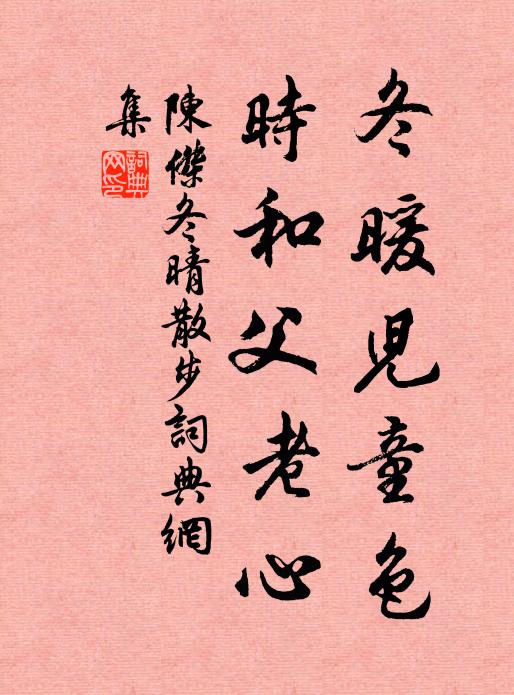 冬暖児童色
時和父老心
陳傑冬晴散步詞典網
集
詞典
网印